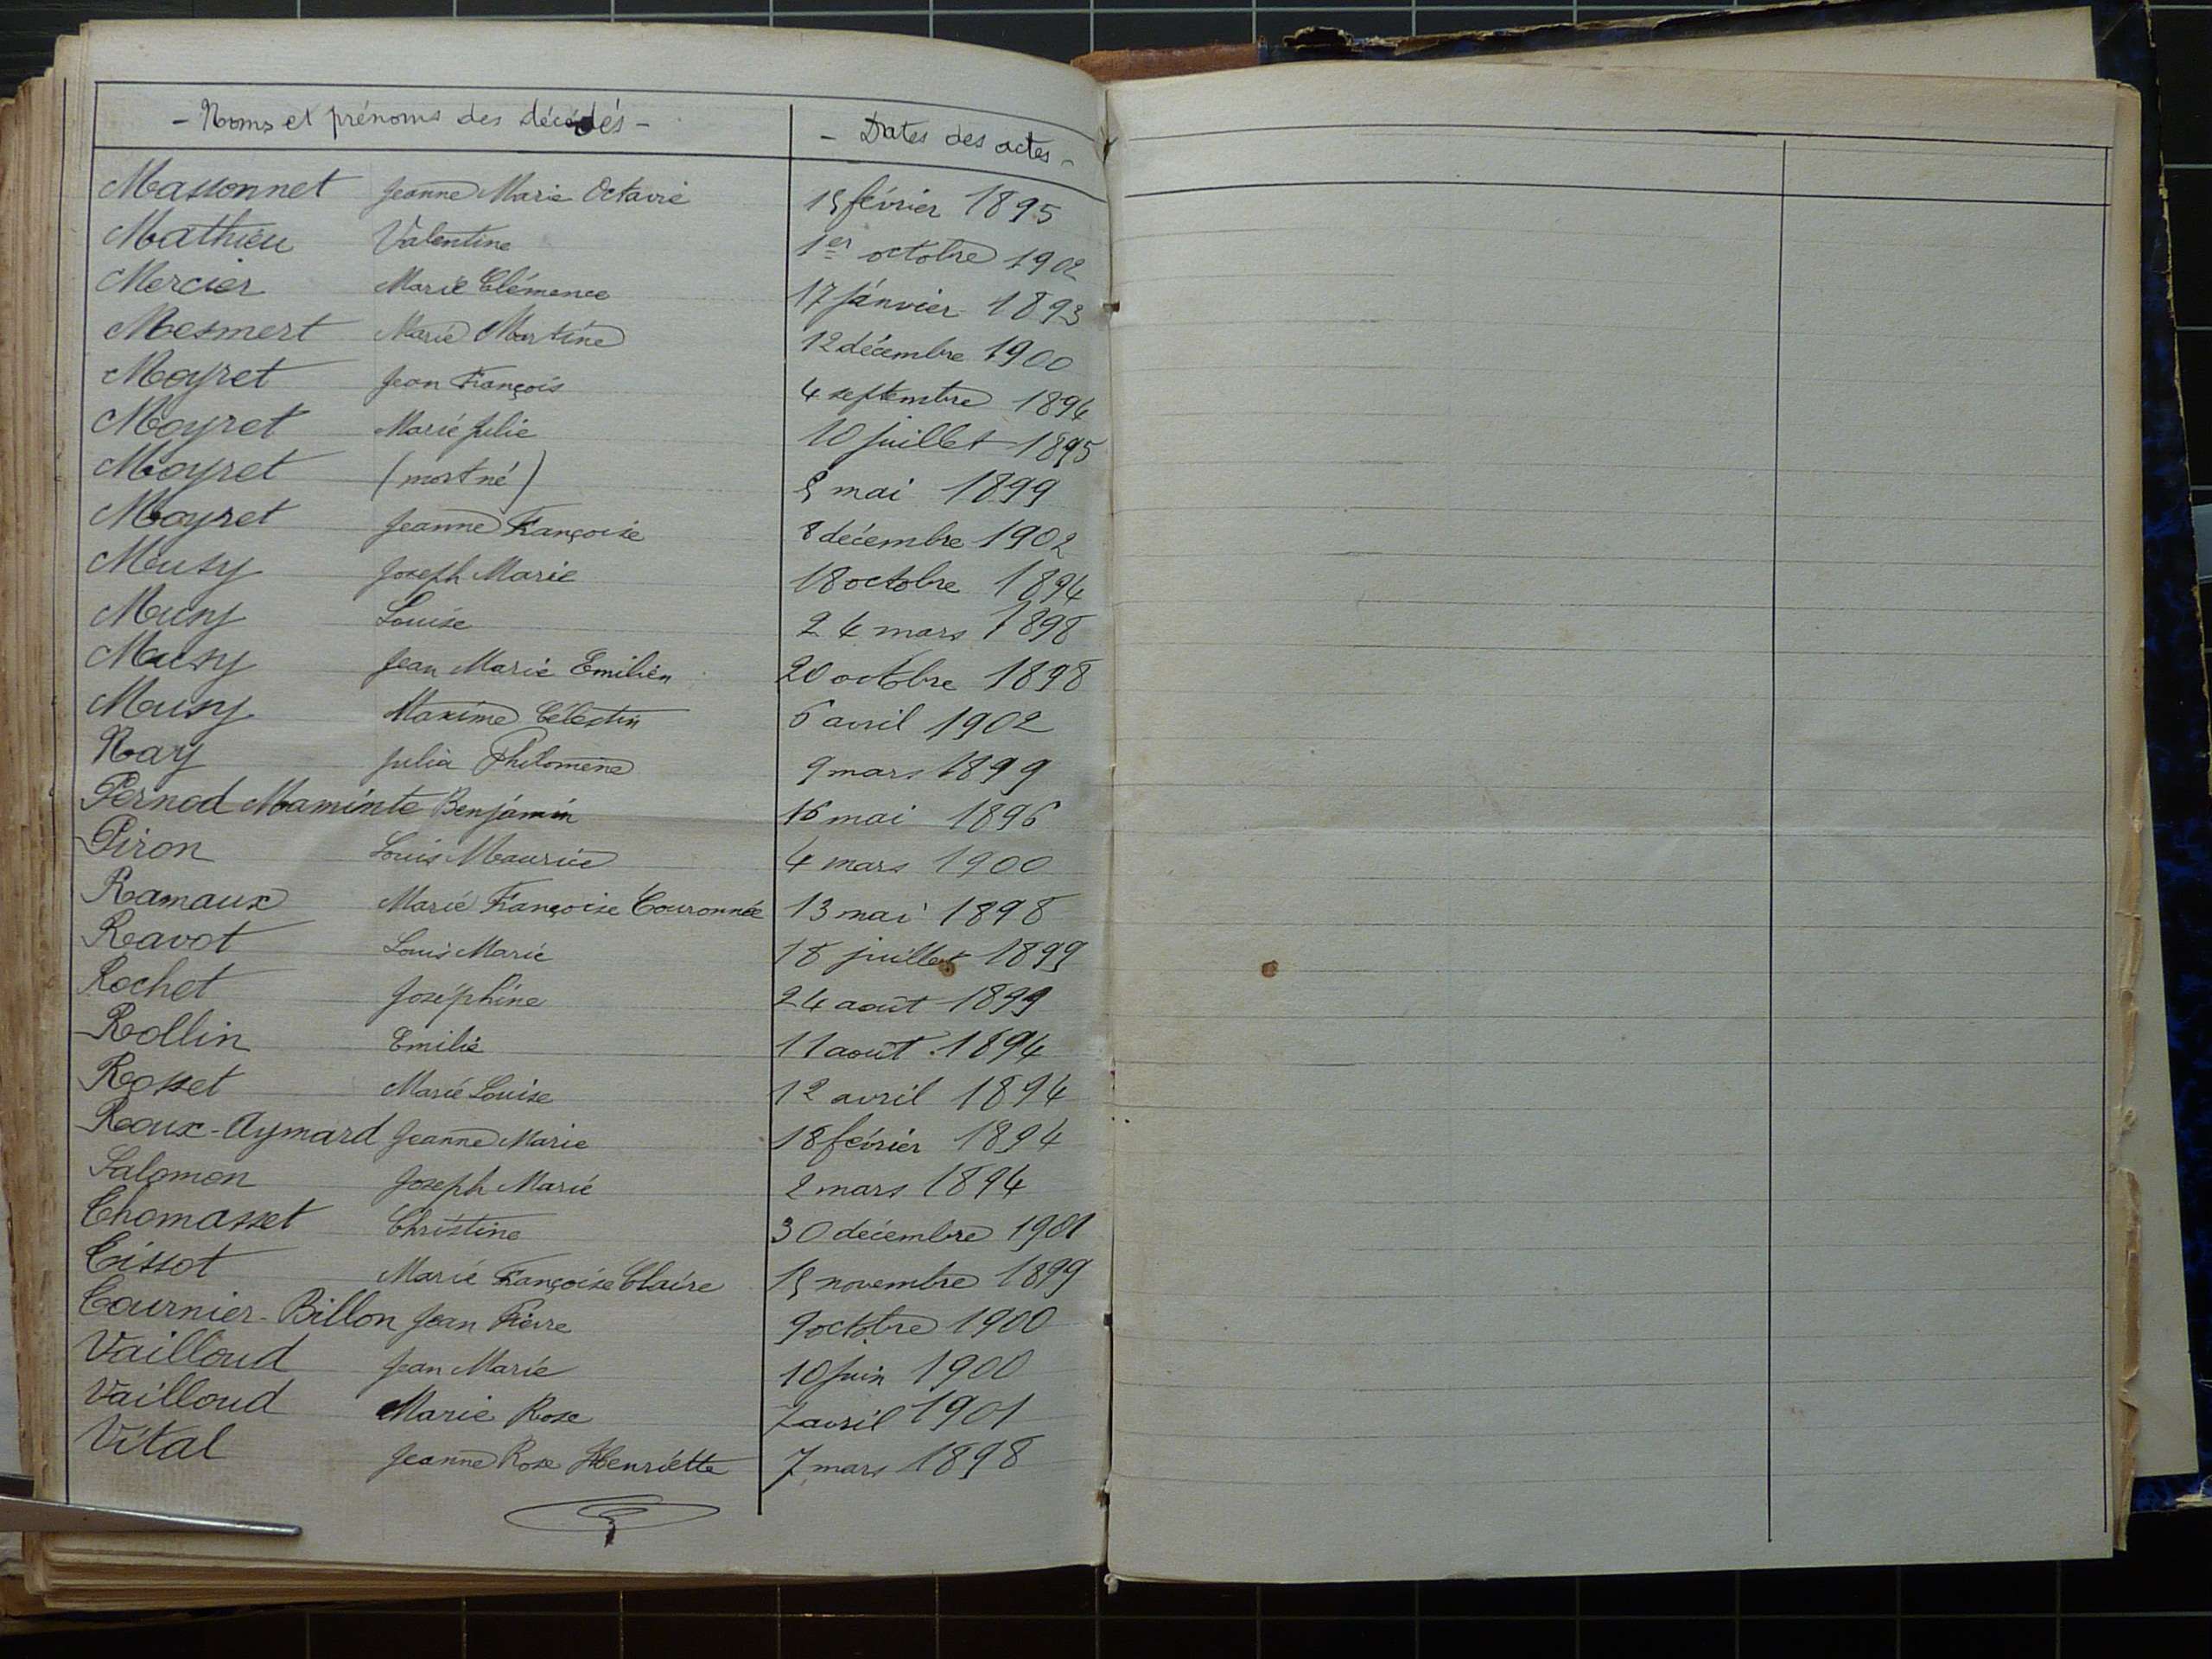 - Noms et prénoms des décédés - - Dates des actes -
Massonnet Jeanne Marie Octavie 15 février 1895
Mathieu Valentine 1er octobre 1902
Mercier Marie Clémence 17 janvier 1893
Mesmert Marie Martine 12 décembre 1900
Moyret Jean François 4 septembre 1894
Moyret Marie Julie 10 juillet 1895
Moyret (mort né) 5 mai 1899
Moyret Jeanne Françoise 8 décembre 1902
Musy Joseph Marie 18 octobre 1894
Musy Louise 24 mars 1898
Musy Jean Marie Emilien 20 octobre 1898
Musy Maxime Célestin 6 avril 1902
Nay Julia Philomène 9 mars 1899
Pernod Maminte Benjamin 16 mai 1896
Piron Louis Maurice 4 mars 1900
Ramaux Marie Françoise Couronnée 13 mai 1898
Ravot Louis Marie 18 juillet 1899
Rochet Joséphine 24 août 1899
Rollin Emilie 11 août 1894
Rosset Marie Louise 12 avril 1894
Roux-Aymard Jeanne Marie 18 février 1894
Salomon Joseph Marie 2 mars 1894
Thomasset Christine 30 décembre 1901
Tissot Marie Françoise Claire 15 novembre 1899
Tournier-Billon Jean Pierre 9 octobre 1900
Vailloud Jean Marie 10 juin 1900
Vailloud Marie Rose 7 avril 1901
Vital Jeanne Rose Henriette 7 mars 1898